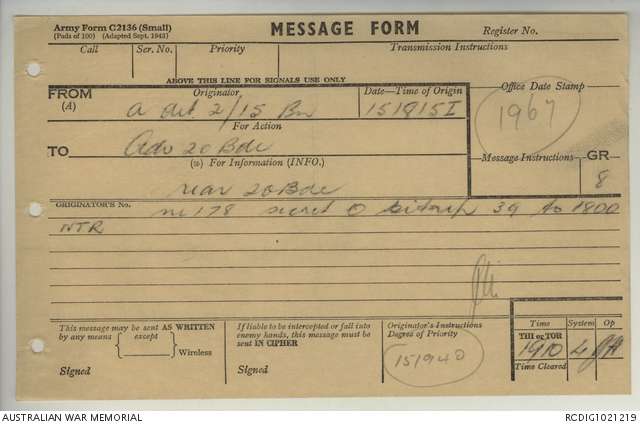 Army Form C2136 (Small)
(Pads of 100) (Adapted Sept. 1943)
MESSAGE FORM
Register No.
Call Ser. No. Priority Transmission Instructions
ABOVE THIS LINE FOR SIGNALS USE ONLY
FROM
(A)
Originator
a Det 2/15 Bn
Date—Time of Origin
151915I
Office Date Stamp
1967
For Action
TO
Adv 20 Bde
(W) For Information (INFO.)
rear 20 Bde
Message Instructions
GR
8
ORIGINATOR'S No.
178 secret O sitrep 39 to 1800
NTR
This message may be sent AS WRITTEN
by any means except
Wireless
Signed
If liable to be intercepted or fall into
enemy hands, this message must be
sent IN CIPHER
Signed
Originator's Instructions
Degree of Priority
151940
Time System Op
THI or TOR
1910 4
Time Cleared
AUSTRALIAN WAR MEMORIAL
RCDIG1021219